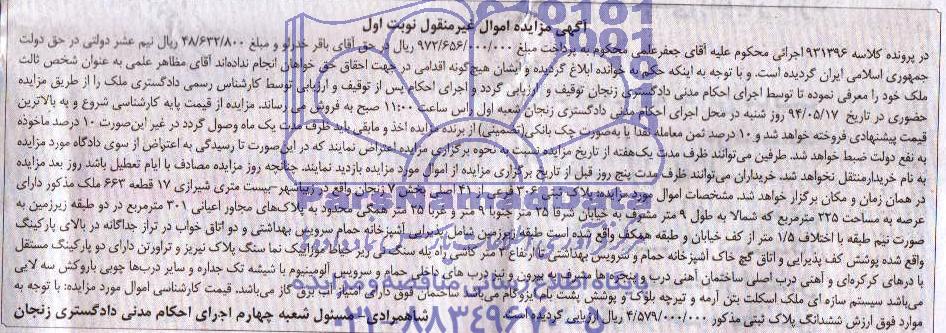 آگهی مزایده اموال غیرمنقول نوبت اول
در پرونده کلاسه ۹۳۱۳۹۶ اجرائی محکوم علیه آقای جعفر علمی محکوم به پرداخت مبلغ ۹۷۲/۶۵۶/۰۰۰/۰۰۰ ریال در حق آقای باقر خدرلو و مبلغ ۴۸/۶۳۲/۸۰۰ ریال نیم عشر دولتی در حق دولت
جمهوری اسلامی ایران گردیده است. و با توجه به اینکه حکم به خوانده ابلاغ گردیده و ایشان هیچ‌گونه اقدامی در جهت احقاق حق خواهان انجام نداده‌اند آقای مظاهر علمی به عنوان شخص ثالث
ملک خود را معرفی نموده تا توسط اجرای احکام مدنی دادگستری زنجان توقیف و ارزیابی گردد و اجرای احکام پس از توقیف و ارزیابی توسط کارشناس رسمی دادگستری ملک را از طریق مزایده
حضوری در تاریخ ۹۴/۰۵/۱۷ روز شنبه در محل اجرای احکام مدنی دادگستری زنجان شعبه اول راس ساعت ۱۱:۰۰ صبح به فروش می رساند. مزایده از قیمت پایه کارشناسی شروع و به بالاترین
قیمت پیشنهادی فروخته خواهد شد و ۱۰ درصد ثمن معامله نقدا یا به‌صورت چک بانکی(تضمینی) از برنده مزایده اخذ و مابقی باید ظرف مدت یک ماه وصول گردد در غیر این‌صورت ۱۰ درصد ماخوذه
به نفع دولت ضبط خواهد شد. طرفین می‌توانند ظرف مدت یک‌هفته از تاریخ مزایده نسبت به نحوه برگزاری مزایده اعتراض نمایند که در این‌صورت تا رسیدگی به اعتراض از سوی دادگاه مورد مزایده
به نام خریدار منتقل نخواهد شد. خریداران می‌توانند ظرف مدت پنج روز قبل از تاریخ برگزاری مزایده از اموال مورد مزایده بازدید نمایند. چنانچه روز مزایده مصادف با ایام تعطیل باشد روز بعد مزایده
در همان زمان و مکان برگزار خواهد شد. مشخصات اموال مورد مزایده: پلاک ثبتی ۶۰۳ فرعی از ۴۱ اصلی بخش ۷ زنجان واقع در زیباشهر-بیست متری شیرازی ۱۷ قطعه ۶۶۳ ملک مذکور دارای
عرصه به مساحت ۲۲۵ مترمربع که شمالا به طول ۹ متر مشرف به خیابان شرقا ۲۵ متر جنوبا ۹ متر و غربا ۲۵ متر همگی محدود به پلاک‌های مجاور اعیانی ۳۰۱ مترمربع در دو طبقه زیرزمین به
صورت نیم طبقه با اختلاف ۱/۵ متر از کف خیابان و طبقه همکف واقع شده است طبقه زیرزمین شامل پذیرایی آشپزخانه حمام سرویس بهداشتی و دو اتاق خواب در تراز جداگانه در بالای پارکینگ
واقع شده پوشش کف پذیرایی و اتاق گچ خاک آشپزخانه حمام و سرویس بهداشتی تا ارتفاع ۲ متر کاشی راه پله سنگ کف زیر حیاط موزاییک نما سنگ پلاک نیریز و تراورتن دارای دو پارکینگ مستقل
با درهای کرکره‌ای و آهنی درب اصلی ساختمان آهنی درب و پنجره‌ها مشرف به بیرون و نیز درب های داخلی حمام و سرویس آلومینیوم با شیشه تک جداره و سایر درب‌ها چوبی با روکش سه لایی
می‌باشد سیستم سازه ای ملک اسکلت بتن آرمه و تیرچه بلوک و پوشش پشت بام ایزوگام می‌باشد ساختمان فوق دارای امتیاز آب برق گاز می‌باشد. قیمت کارشناسی اموال مورد مزایده: با توجه به
موارد فوق ارزش ششدانگ پلاک ثبتی مذکور ۴/۵۷۹/۰۰۰/۰۰۰ ریال ارزیابی گردیده است.
شاهمرادی- مسئول شعبه چهارم اجرای احکام مدنی دادگستری زنجان
ParsNamadData
پایگاه اطلاع رسانی مناقصه و مزایده